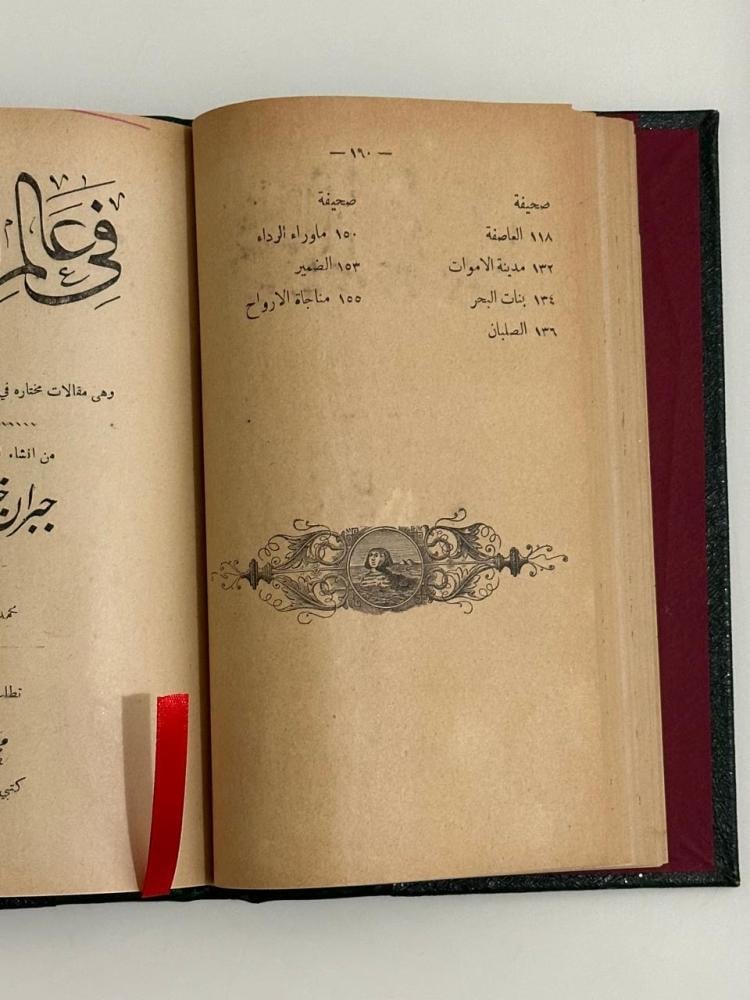 — ١٦٠ —
صحيفة
١١٨ العاصفة
١٣٢ مدينة الاموات
١٣٤ بنات البحر
١٣٦ الصلبان
صحيفة
١٥٠ ماوراء الرداء
١٥٣ الضمير
١٥٥ مناجاة الارواح
في عالم
وهى مقالات مختاره في
من انشاء
جبران
كتبي